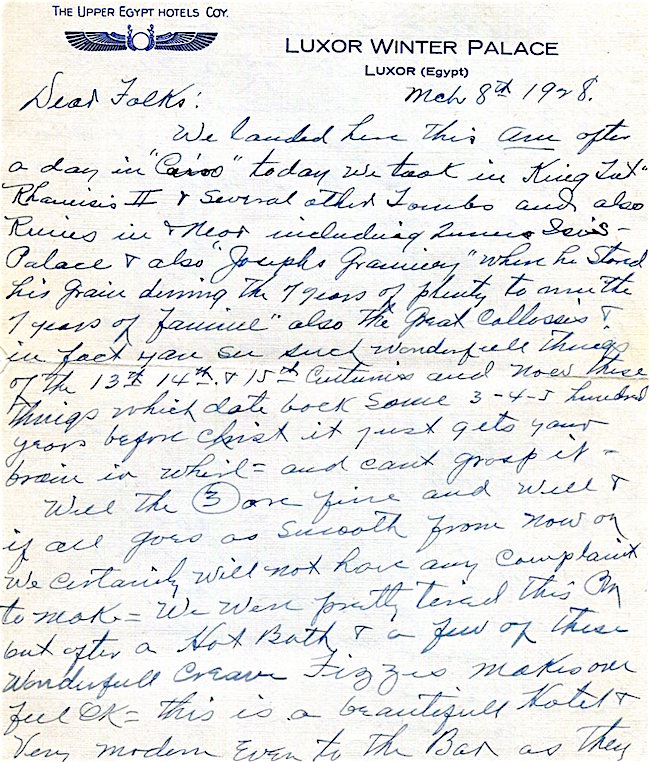 THE UPPER EGYPT HOTELS COY.
LUXOR WINTER PALACE
LUXOR (Egypt)
Mch 8th 1928.
Dear Folks:
We landed here this am after
a day in "Cairo" today we took in King Tut"
Rhamisis II & several other Tombs and also
Ruins in & Near including Isis-
Palace & also "Josephs Grainery" where he stored
his grain during the 7 years of plenty to meet the
7 years of famine" also the Great Collossis &
in fact you see such wonderfull things
of the 13th 14th & 15th Centuries and now these
things which date back some 3-4-5 hundred
years before Christ it just gets your
brain in whirl = and cant grasp it -
Will the 3 are fine and well &
if all goes as smooth from now on
we certainly will not have any complaint
to make = We were pretty tired this Pm
but after a Hot Bath & a few of these
wonderfull Cream Fizzes makes one
feel OK = this is a beautifull Hotel &
Very modern Even to the Bar as they